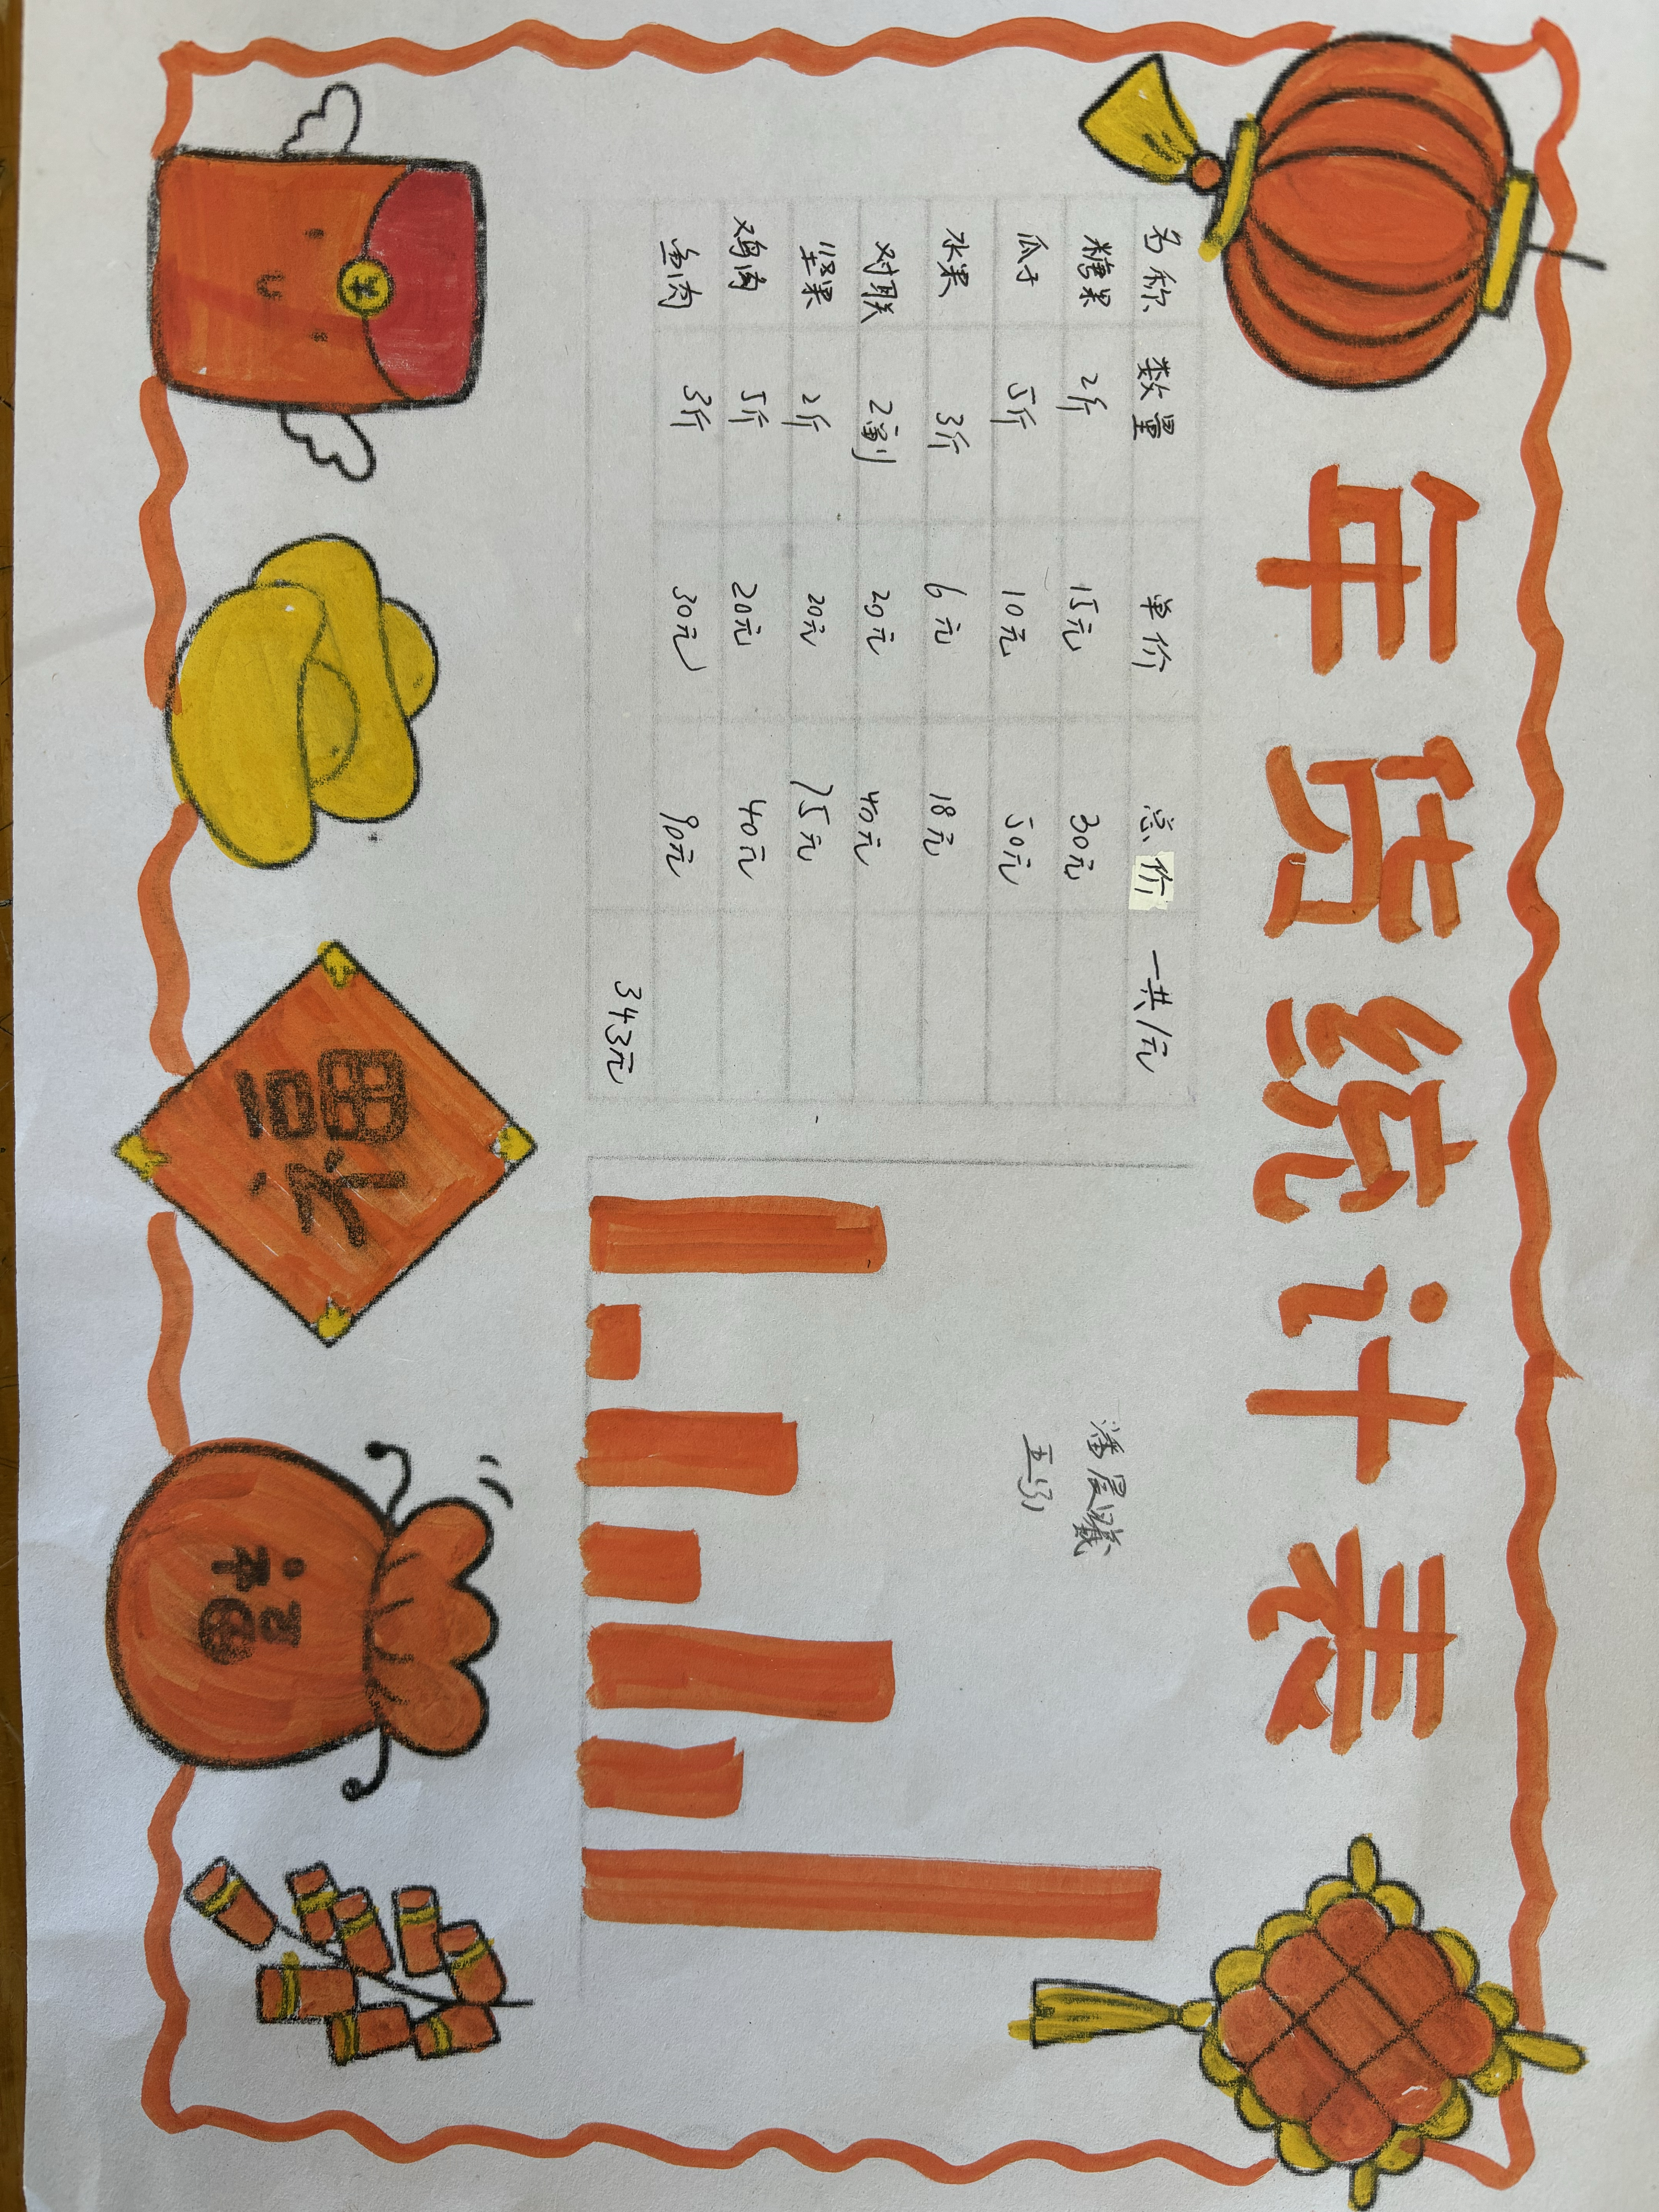 年货统计表
名称 数量 单价 总价 一共/元
糖果 2斤 15元 30元
瓜子 5斤 10元 50元
水果 3斤 6元 18元
对联 2副 20元 40元
坚果 2斤 20元 75元
鸡肉 5斤 20元 40元
鱼肉 3斤 30元 90元
343元
福
福